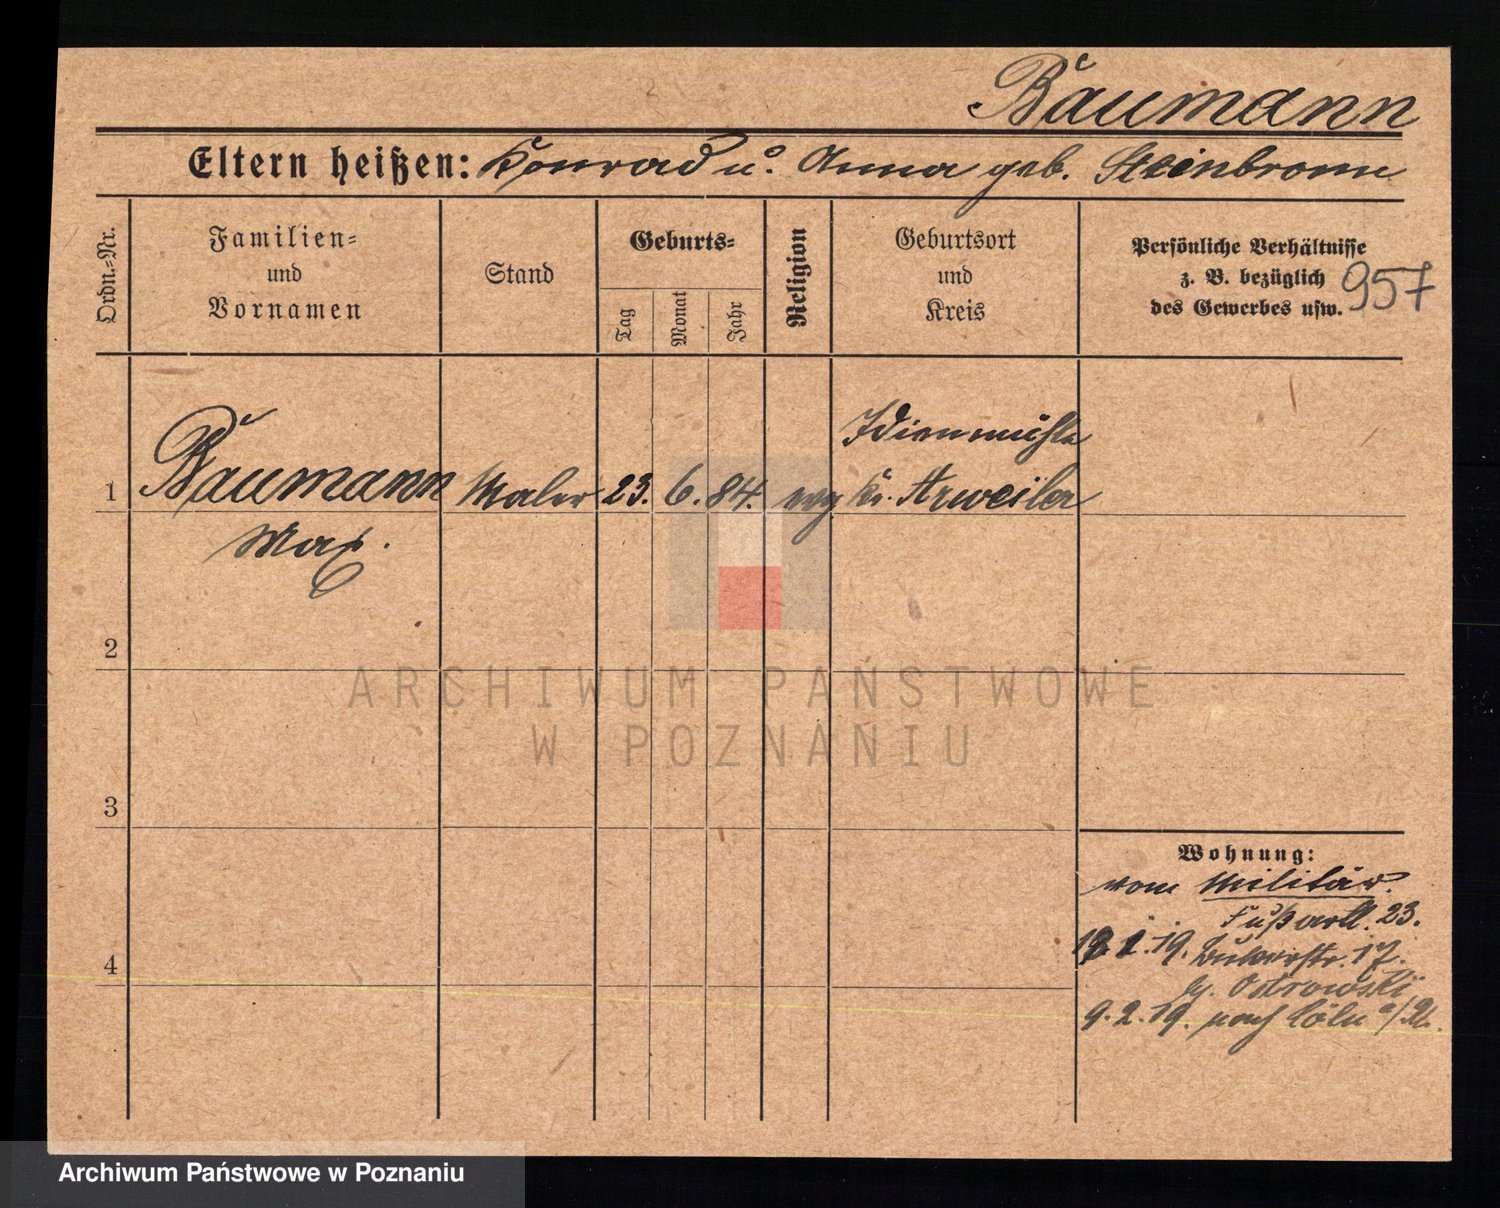 Baumann
Eltern heißen: Konrad u. Anna geb. Steinbronn
Ordn.-Nr.
Familien=
und
Vornamen
Stand
Geburts=
Tag
Monat
Jahr
Religion
Geburtsort
und
Kreis
Persönliche Verhältnisse
z. B. bezüglich
des Gewerbes usw.
957
1
Baumann
Max.
Maler
23. 6. 84.
evg
Kr. Arweiler
2
3
4
Wohnung:
vom Militär.
Fußartl. 23.
19. 17.
Ostrowski
9. 2. 19. nach Cöln a/Rh.
ARCHIWUM PAŃSTWOWE
W POZNANIU
Archiwum Państwowe w Poznaniu